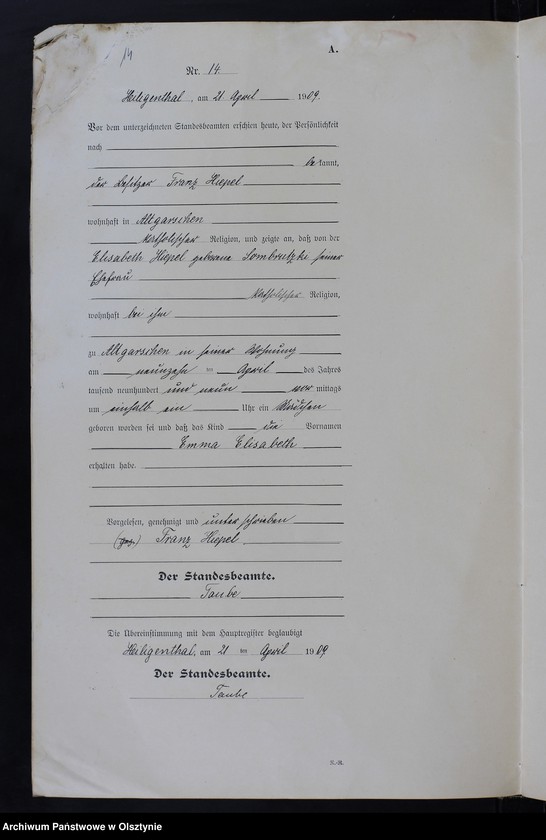 14
A.
Nr. 14.
Heiligenthal, am 21 April 1909.
Vor dem unterzeichneten Standesbeamten erschien heute, der Persönlichkeit
nach
bekannt,
der Besitzer Franz Hiepel
wohnhaft in Altgarschen
katholischer Religion, und zeigte an, daß von der
Elisabeth Hiepel geborene Sombrutzki seiner
Ehefrau
katholischer Religion,
wohnhaft bei ihm
zu Altgarschen in seiner Wohnung
am neunzehn ten April des Jahres
tausend neunhundert und neun vor mittags
um einhalb ein Uhr ein Mädchen
geboren worden sei und daß das Kind die Vornamen
Emma Elisabeth
erhalten habe.
Vorgelesen, genehmigt und unterschrieben
(gez.) Franz Hiepel
Der Standesbeamte.
Taube
Die Übereinstimmung mit dem Hauptregister beglaubigt
Heiligenthal, am 21 ten April 1909.
Der Standesbeamte.
Taube
S.-R.
Archiwum Państwowe w Olsztynie